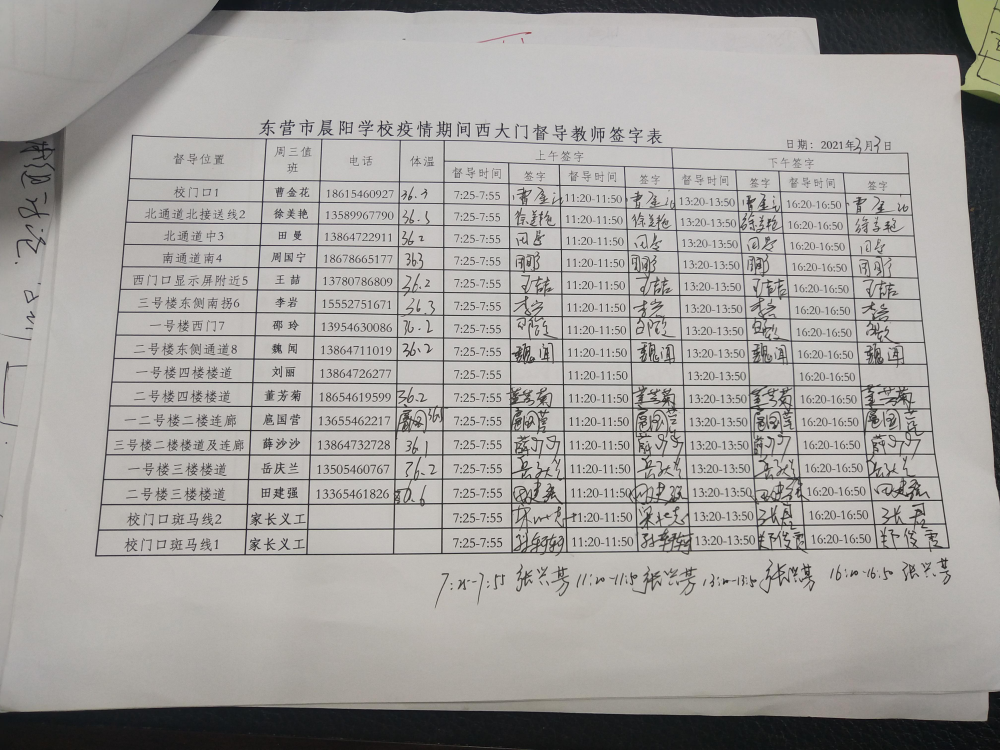 东营市晨阳学校疫情期间西大门督导教师签字表
日期：2021年3月3日
督导位置 周三值班 电话 体温 上午签字 下午签字
督导时间 签字 督导时间 签字 督导时间 签字 督导时间 签字
校门口1 曹金花 18615460927 36.3 7:25-7:55 11:20-11:50 13:20-13:50 16:20-16:50
北通道北接送线2 徐美艳 13589967790 36.5 7:25-7:55 徐美艳 11:20-11:50 徐美艳 13:20-13:50 徐美艳 16:20-16:50 徐美艳
北通道中3 田曼 13864722911 36.2 7:25-7:55 11:20-11:50 13:20-13:50 16:20-16:50
南通道南4 周国宁 18678665177 363 7:25-7:55 11:20-11:50 13:20-13:50 16:20-16:50
西门口显示屏附近5 王喆 13780786809 36.2 7:25-7:55 王喆 11:20-11:50 王喆 13:20-13:50 王喆 16:20-16:50 王喆
三号楼东侧南拐6 李岩 15552751671 36.3 7:25-7:55 李岩 11:20-11:50 李岩 13:20-13:50 李岩 16:20-16:50 李岩
一号楼西门7 邵玲 13954630086 36.2 7:25-7:55 11:20-11:50 13:20-13:50 16:20-16:50
二号楼东侧通道8 魏闻 13864711019 36.2 7:25-7:55 魏闻 11:20-11:50 魏闻 13:20-13:50 魏闻 16:20-16:50 魏闻
一号楼四楼楼道 刘丽 13864726277 7:25-7:55 11:20-11:50 13:20-13:50 16:20-16:50
二号楼四楼楼道 董芳菊 18654619599 36.2 7:25-7:55 董芳菊 11:20-11:50 董芳菊 13:20-13:50 董芳菊 16:20-16:50 董芳菊
一二号楼二楼连廊 扈国营 13655462217 7:25-7:55 扈国营 11:20-11:50 扈国营 13:20-13:50 扈国营 16:20-16:50 扈国营
三号楼二楼楼道及连廊 薛沙沙 13864732728 36 7:25-7:55 薛沙沙 11:20-11:50 薛沙沙 13:20-13:50 薛沙沙 16:20-16:50 薛沙沙
一号楼三楼楼道 岳庆兰 13505460767 36.2 7:25-7:55 岳庆兰 11:20-11:50 岳庆兰 13:20-13:50 岳庆兰 16:20-16:50 岳庆兰
二号楼三楼楼道 田建强 13365461826 7:25-7:55 田建强 11:20-11:50 田建强 13:20-13:50 田建强 16:20-16:50 田建强
校门口斑马线2 家长义工 7:25-7:55 11:20-11:50 13:20-13:50 16:20-16:50
校门口斑马线1 家长义工 7:25-7:55 11:20-11:50 13:20-13:50 16:20-16:50
7:25-7:55 张兴芳 11:20-11:50 张兴芳 13:20-13:50 张兴芳 16:20-16:50 张兴芳